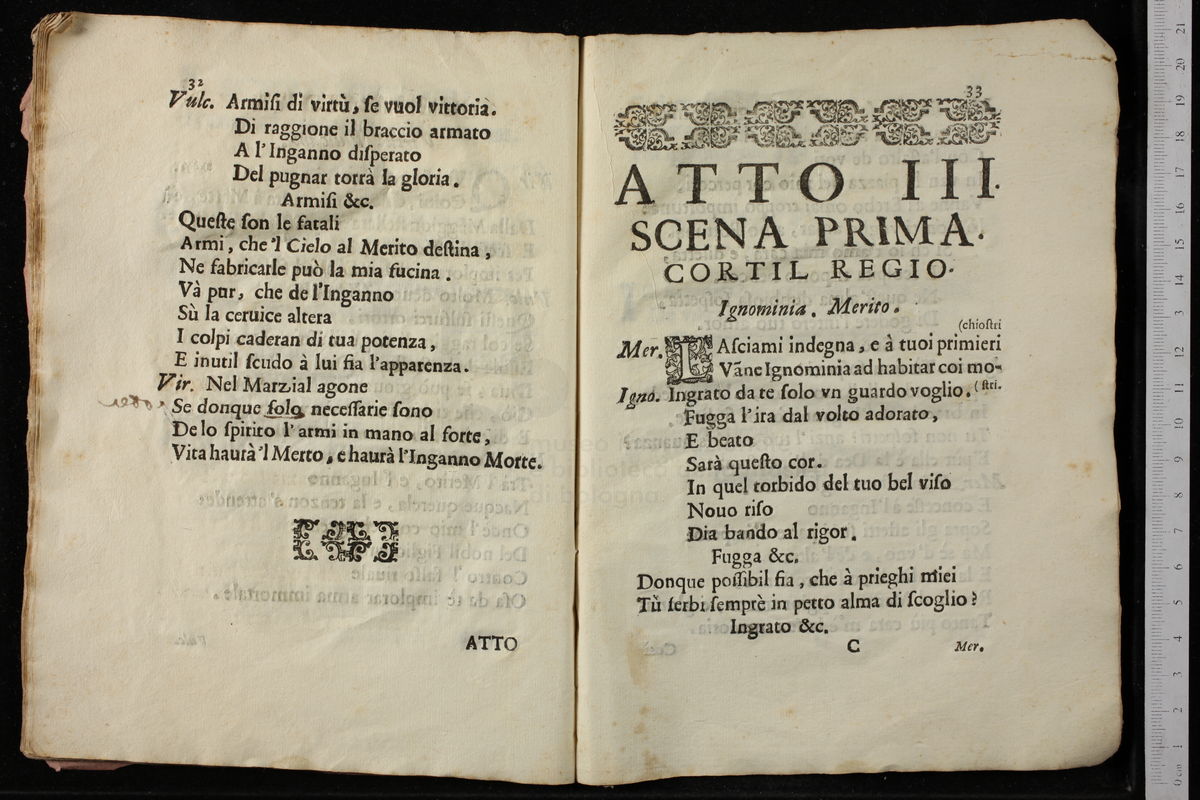 32
Vulc. Armisi di virtù, se vuol vittoria.
Di raggione il braccio armato
A l'Inganno disperato
Del pugnar torrà la gloria.
Armisi &c.
Queste son le fatali
Armi, che 'l Cielo al Merito destina,
Ne fabricarle può la mia fucina.
Và pur, che de l'Inganno
Sù la ceruice altera
I colpi caderan di tua potenza,
E inutil scudo à lui fia l'apparenza.
Vir. Nel Marzial agone
Se donque solo necessarie sono
De lo spirito l'armi in mano al forte,
Vita haurà 'l Merto, e haurà l'Inganno Morte.
ATTO
33
ATTO III.
SCENA PRIMA.
CORTIL REGIO.
Ignominia. Merito.
(chiostri
Mer. LAsciami indegna, e à tuoi primieri
Vãne Ignominia ad habitar coi mo-
(stri.
Igno. Ingrato da te solo vn guardo voglio.
Fugga l'ira dal volto adorato,
E beato
Sarà questo cor.
In quel torbido del tuo bel viso
Nouo riso
Dia bando al rigor.
Fugga &c.
Donque possibil fia, che à prieghi miei
Tù serbi semprè in petto alma di scoglio?
Ingrato &c.
C
Mer.
museo
biblioteca
di bologna